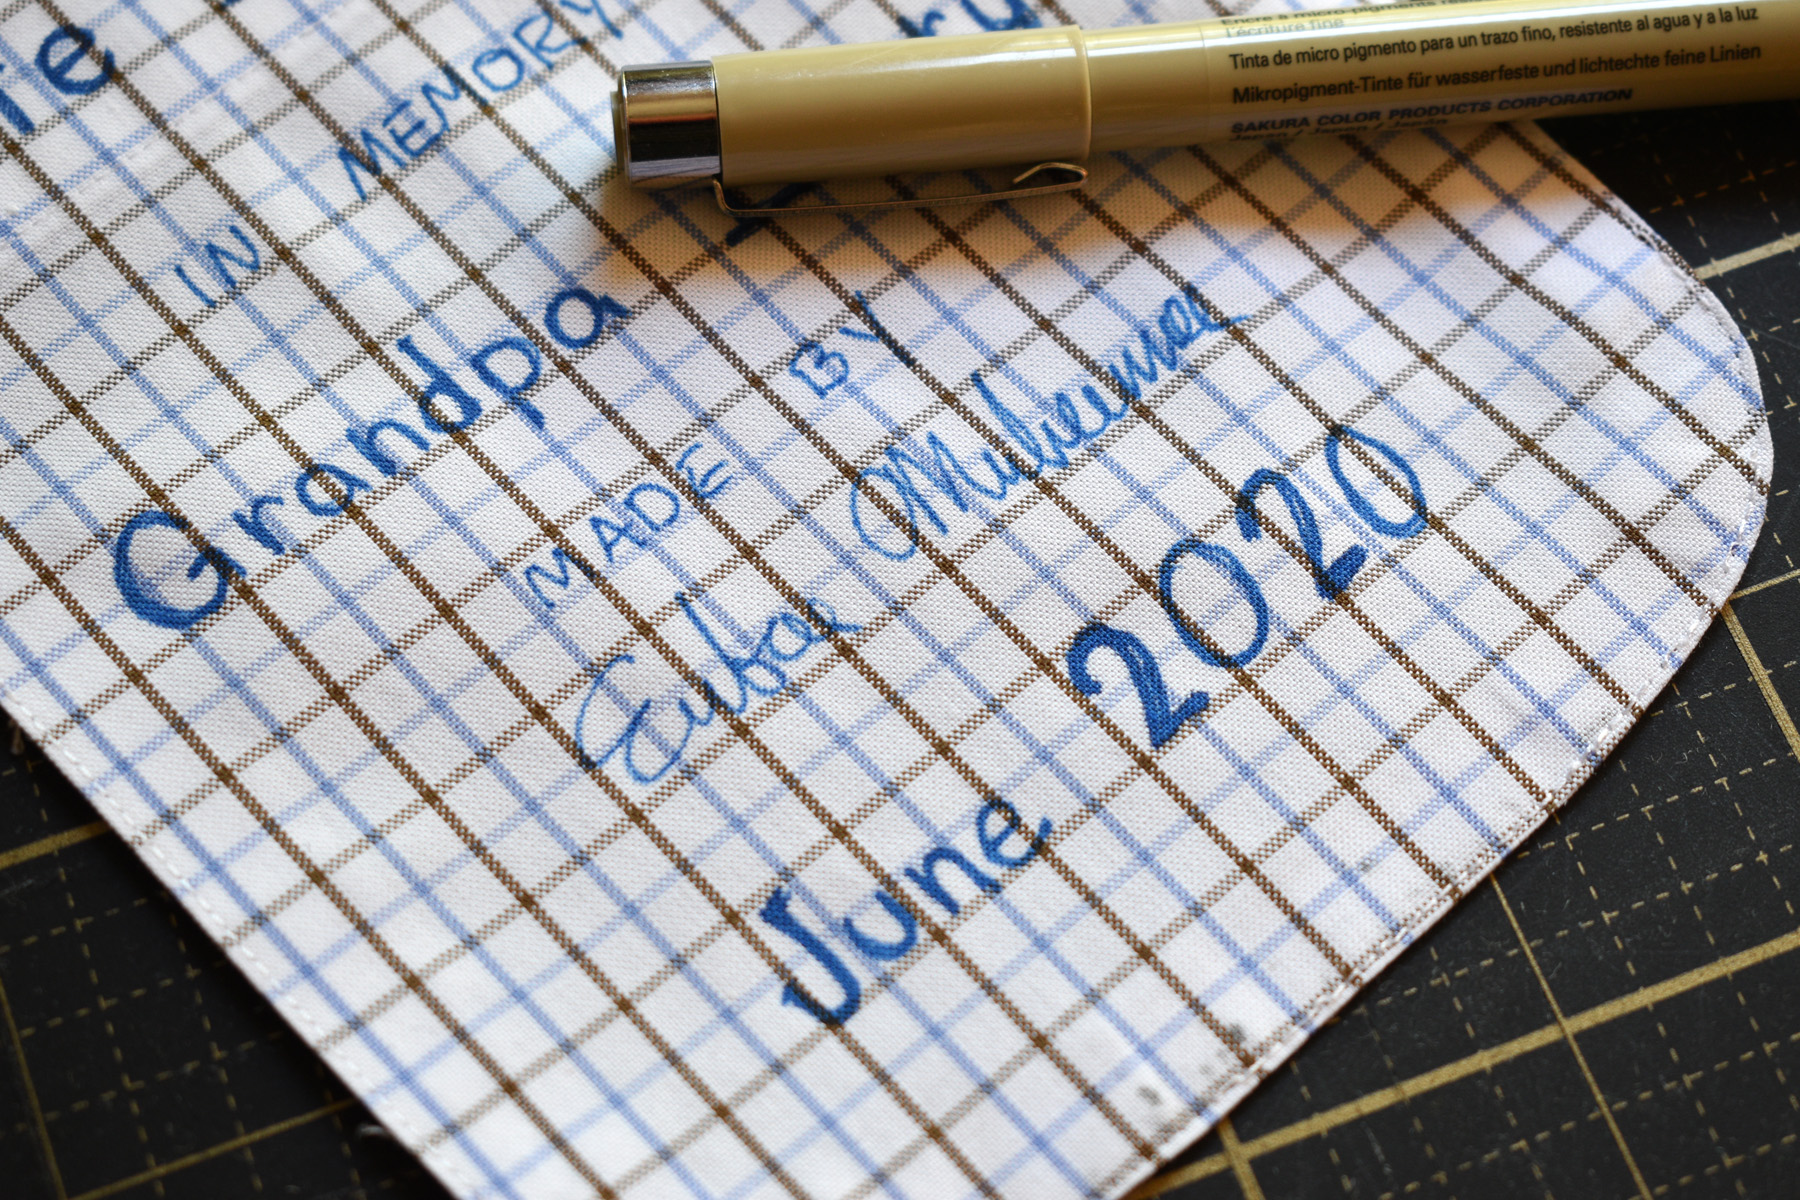 IN MEMORY
Grandpa
MADE BY
June 2020
Encre à micro-pigments
l'écriture fine
Tinta de micro pigmento para un trazo fino, resistente al agua y a la luz
Mikropigment-Tinte für wasserfeste und lichtechte feine Linien
SAKURA COLOR PRODUCTS CORPORATION